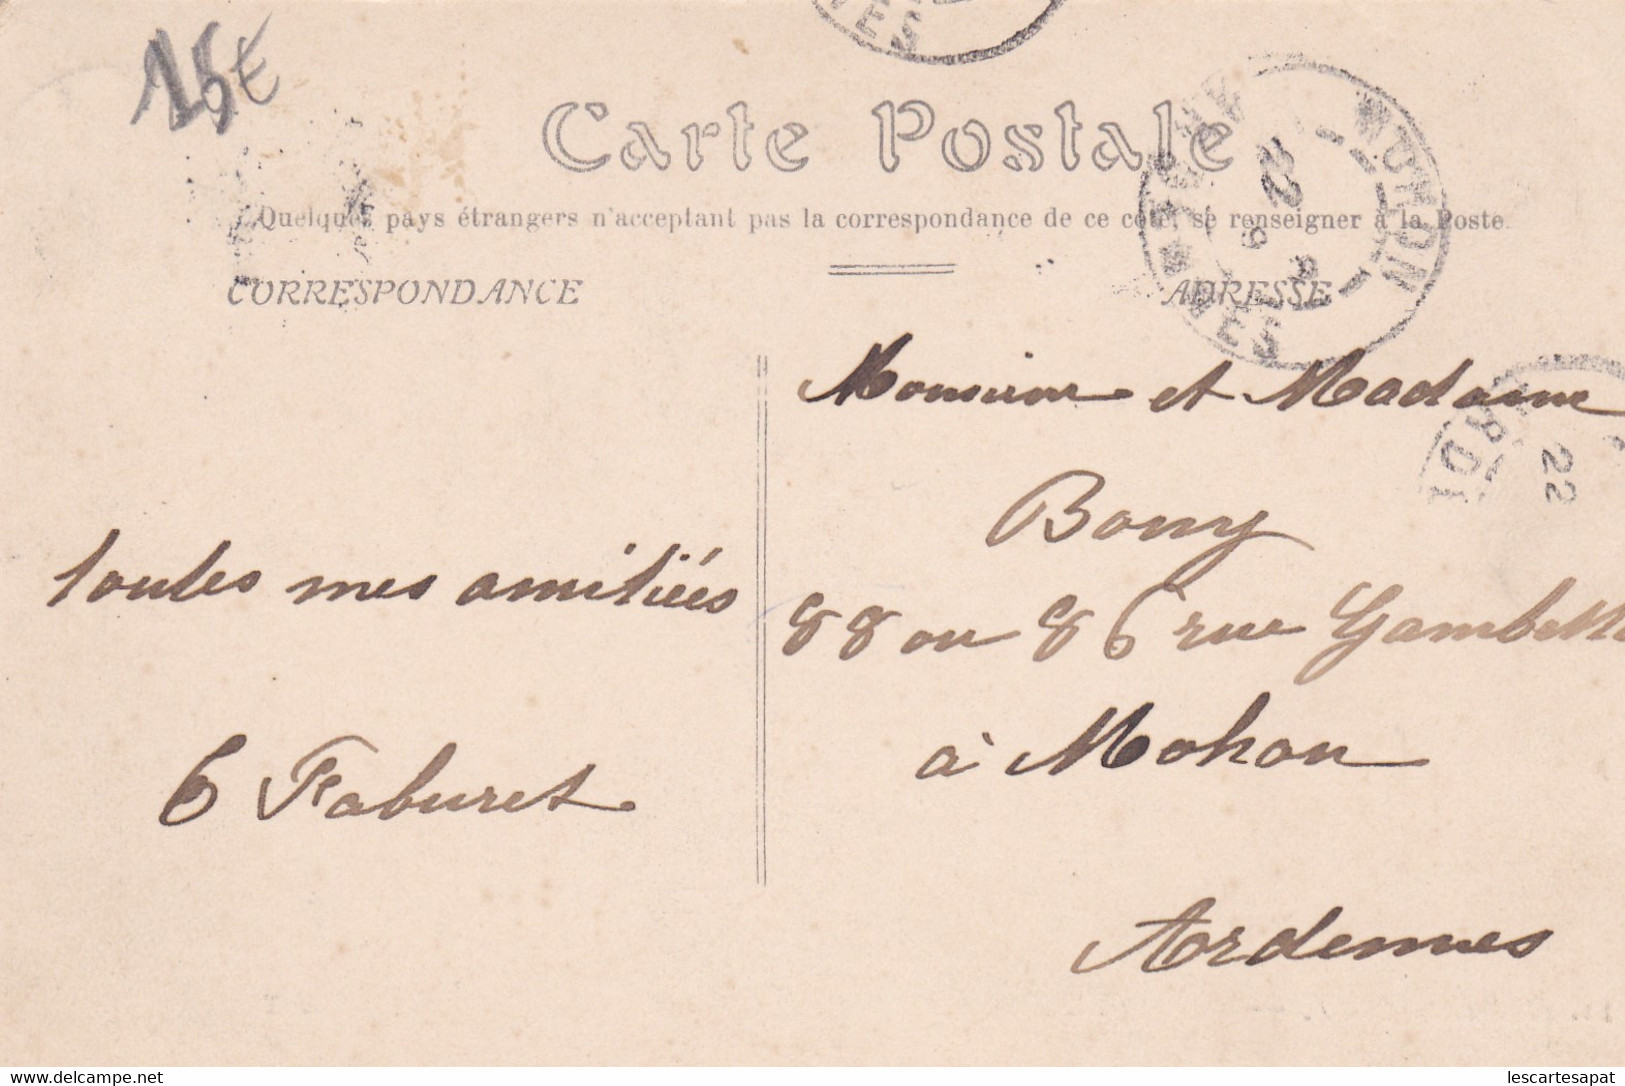 15€
Carte Postale
Quelques pays étrangers n'acceptant pas la correspondance de ce côté, se renseigner à la Poste.
CORRESPONDANCE
ADRESSE
MOHON
NES
22
Monsieur et Madame
Bony
88 ou 86 rue Gambetta
à Mohon
Ardennes
toutes mes amitiées
Faburet
www.delcampe.net
lescartesapat